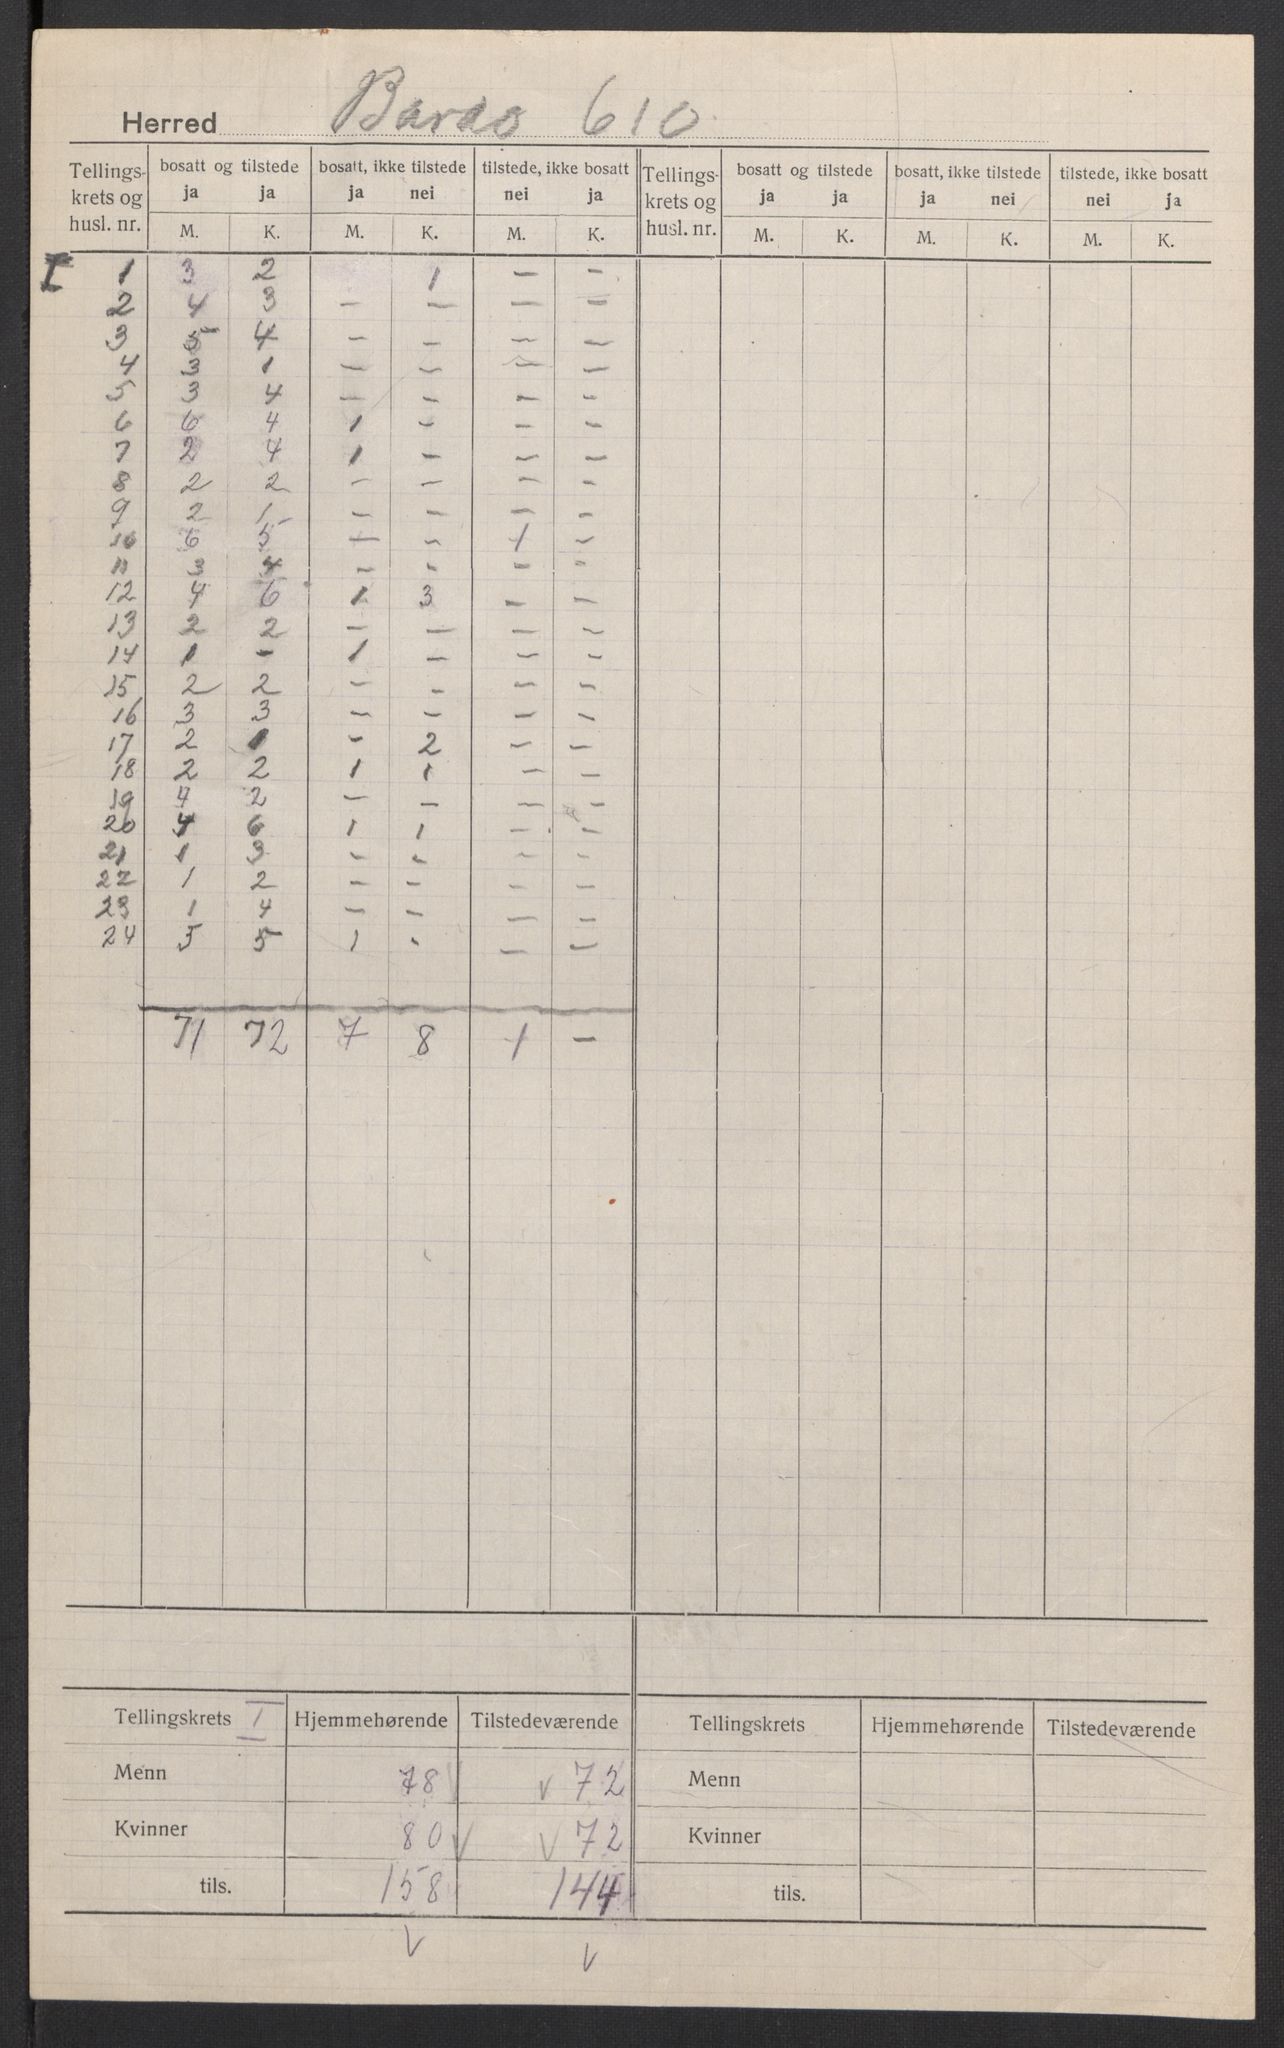 Herred Bardo 610
Tellings- krets og husl. nr. bosatt og tilstede bosatt, ikke tilstede tilstede, ikke bosatt Tellings- krets og husl. nr. bosatt og tilstede bosatt, ikke tilstede tilstede, ikke bosatt
ja ja ja nei nei ja ja ja ja nei nei ja
M. K. M. K. M. K. M. K. M. K. M. K.
I 1 3 2 1 - -
2 4 3 - - - -
3 5 4 - - - -
4 3 1 - - - -
5 3 4 - - - -
6 6 4 1 - - -
7 2 4 1 - - -
8 2 2 - - - -
9 2 1 - - - -
10 6 5 - - 1 -
11 3 4 - - - -
12 4 6 1 3 - -
13 2 2 - - - -
14 1 - 1 - - -
15 2 2 - - - -
16 3 3 - - - -
17 2 1 - 2 - -
18 2 2 1 1 - -
19 4 2 - - - -
20 4 6 1 1 - -
21 1 3 - - - -
22 1 2 - - - -
23 1 4 - - - -
24 5 5 1 - - -
71 72 7 8 1 -
Tellingskrets I Hjemmehørende Tilstedeværende Tellingskrets Hjemmehørende Tilstedeværende
Menn 78 √ √ 72 Menn
Kvinner 80 √ √ 72 Kvinner
tils. 158 144 tils.
√ √